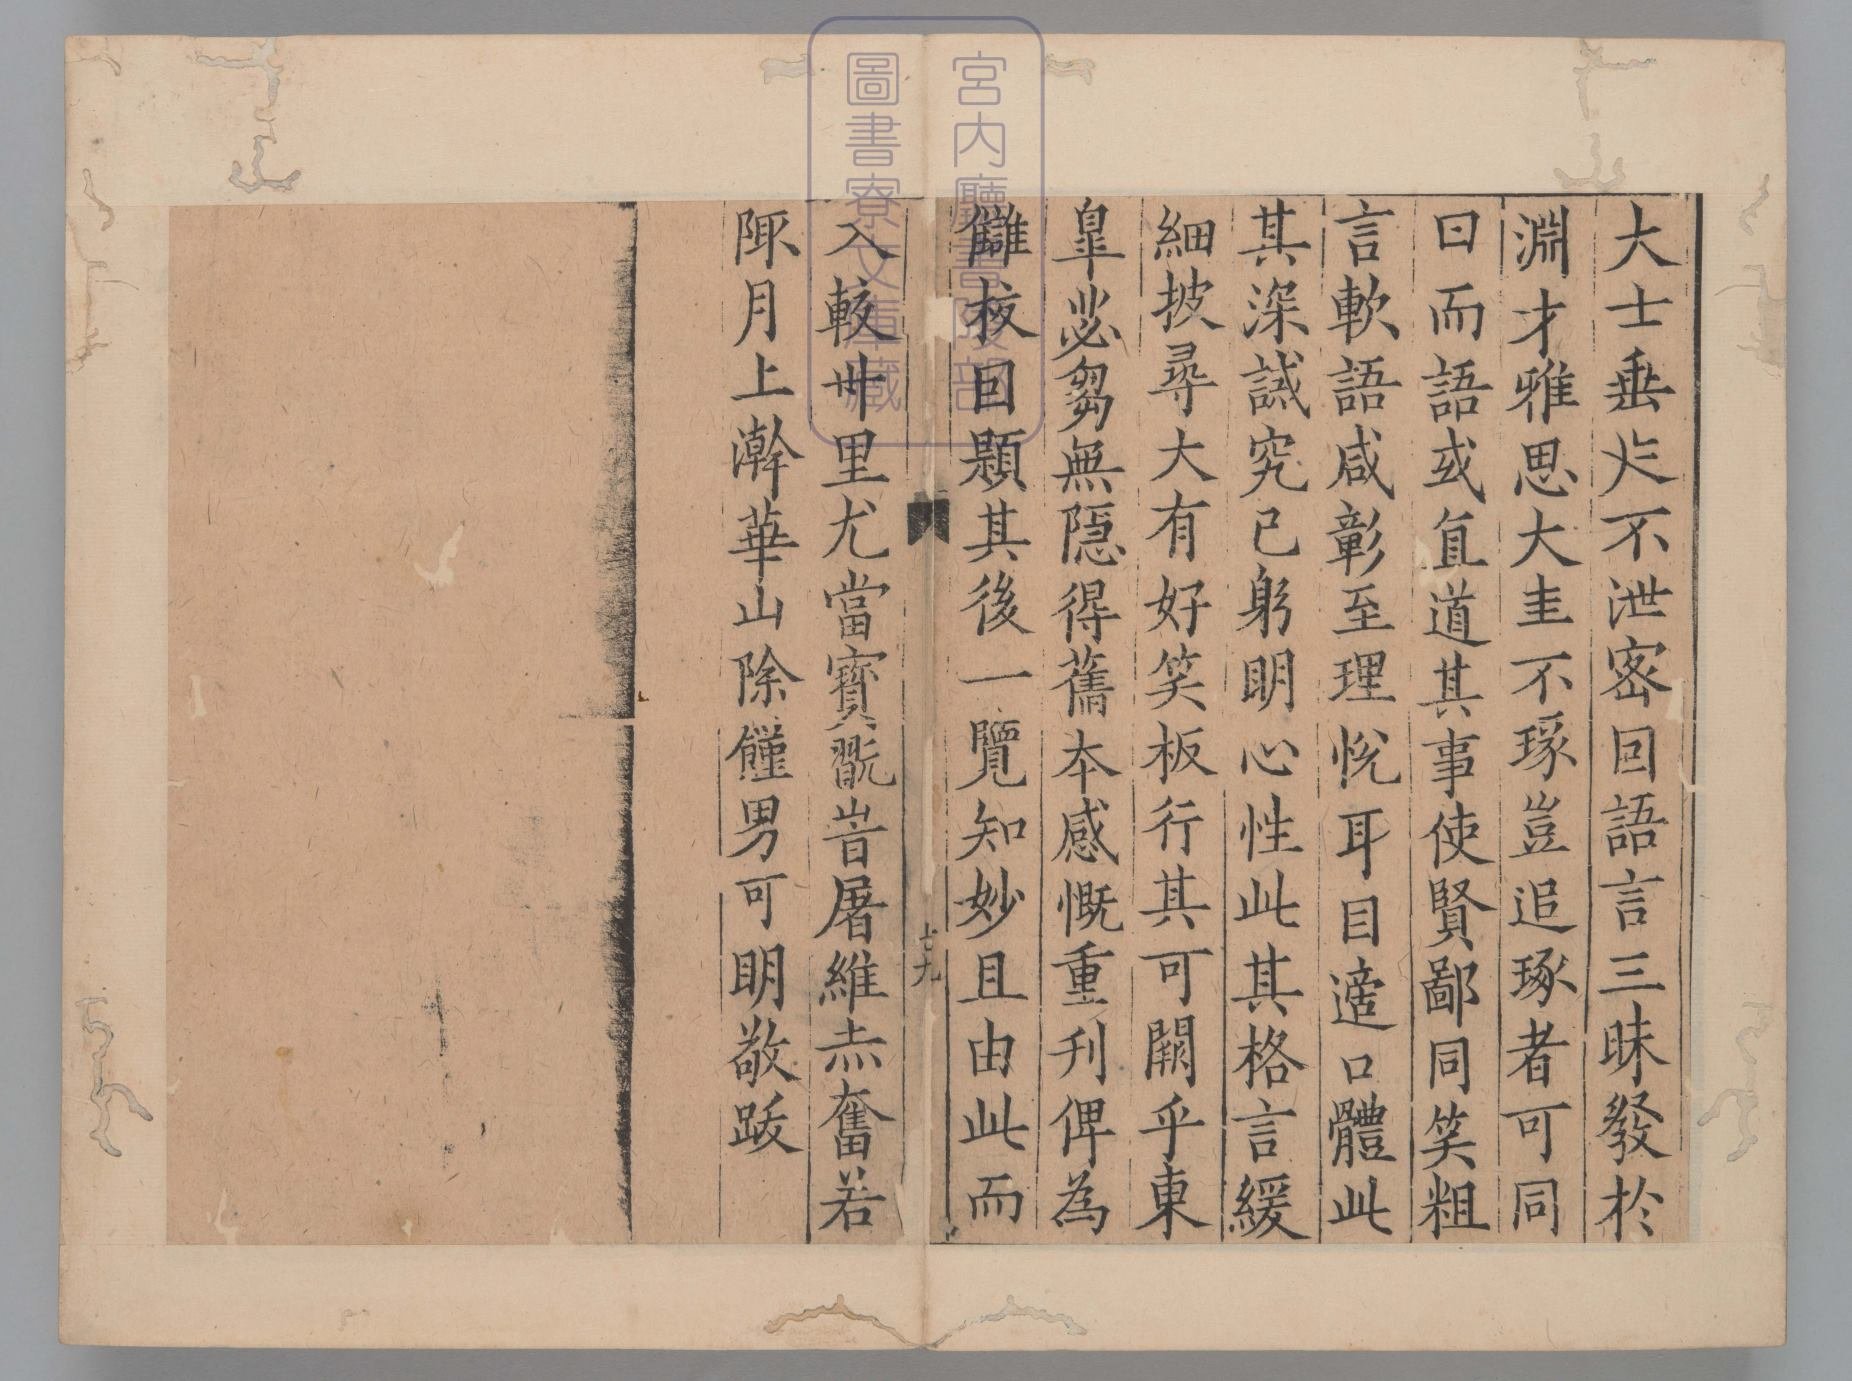 大士垂不泄密囙語言三昧發於
淵才雅思大圭不琢豈追琢者可同
日而語或直道其事使賢鄙同笑粗
言軟語咸彰至理悅耳目適口體此
其深誠究己躬明心性此其格言緩
細披尋大有好笑板行其可闕乎東
皐苾蒭無隱得舊本感慨重刊俾為
讎校囙題其後一覽知妙且由此而
上九
入較卅里尤當寶翫旹屠維赤奮若
陬月上澣華山除饉男可明敬跋
宮内廳書陵部
圖書寮文庫藏